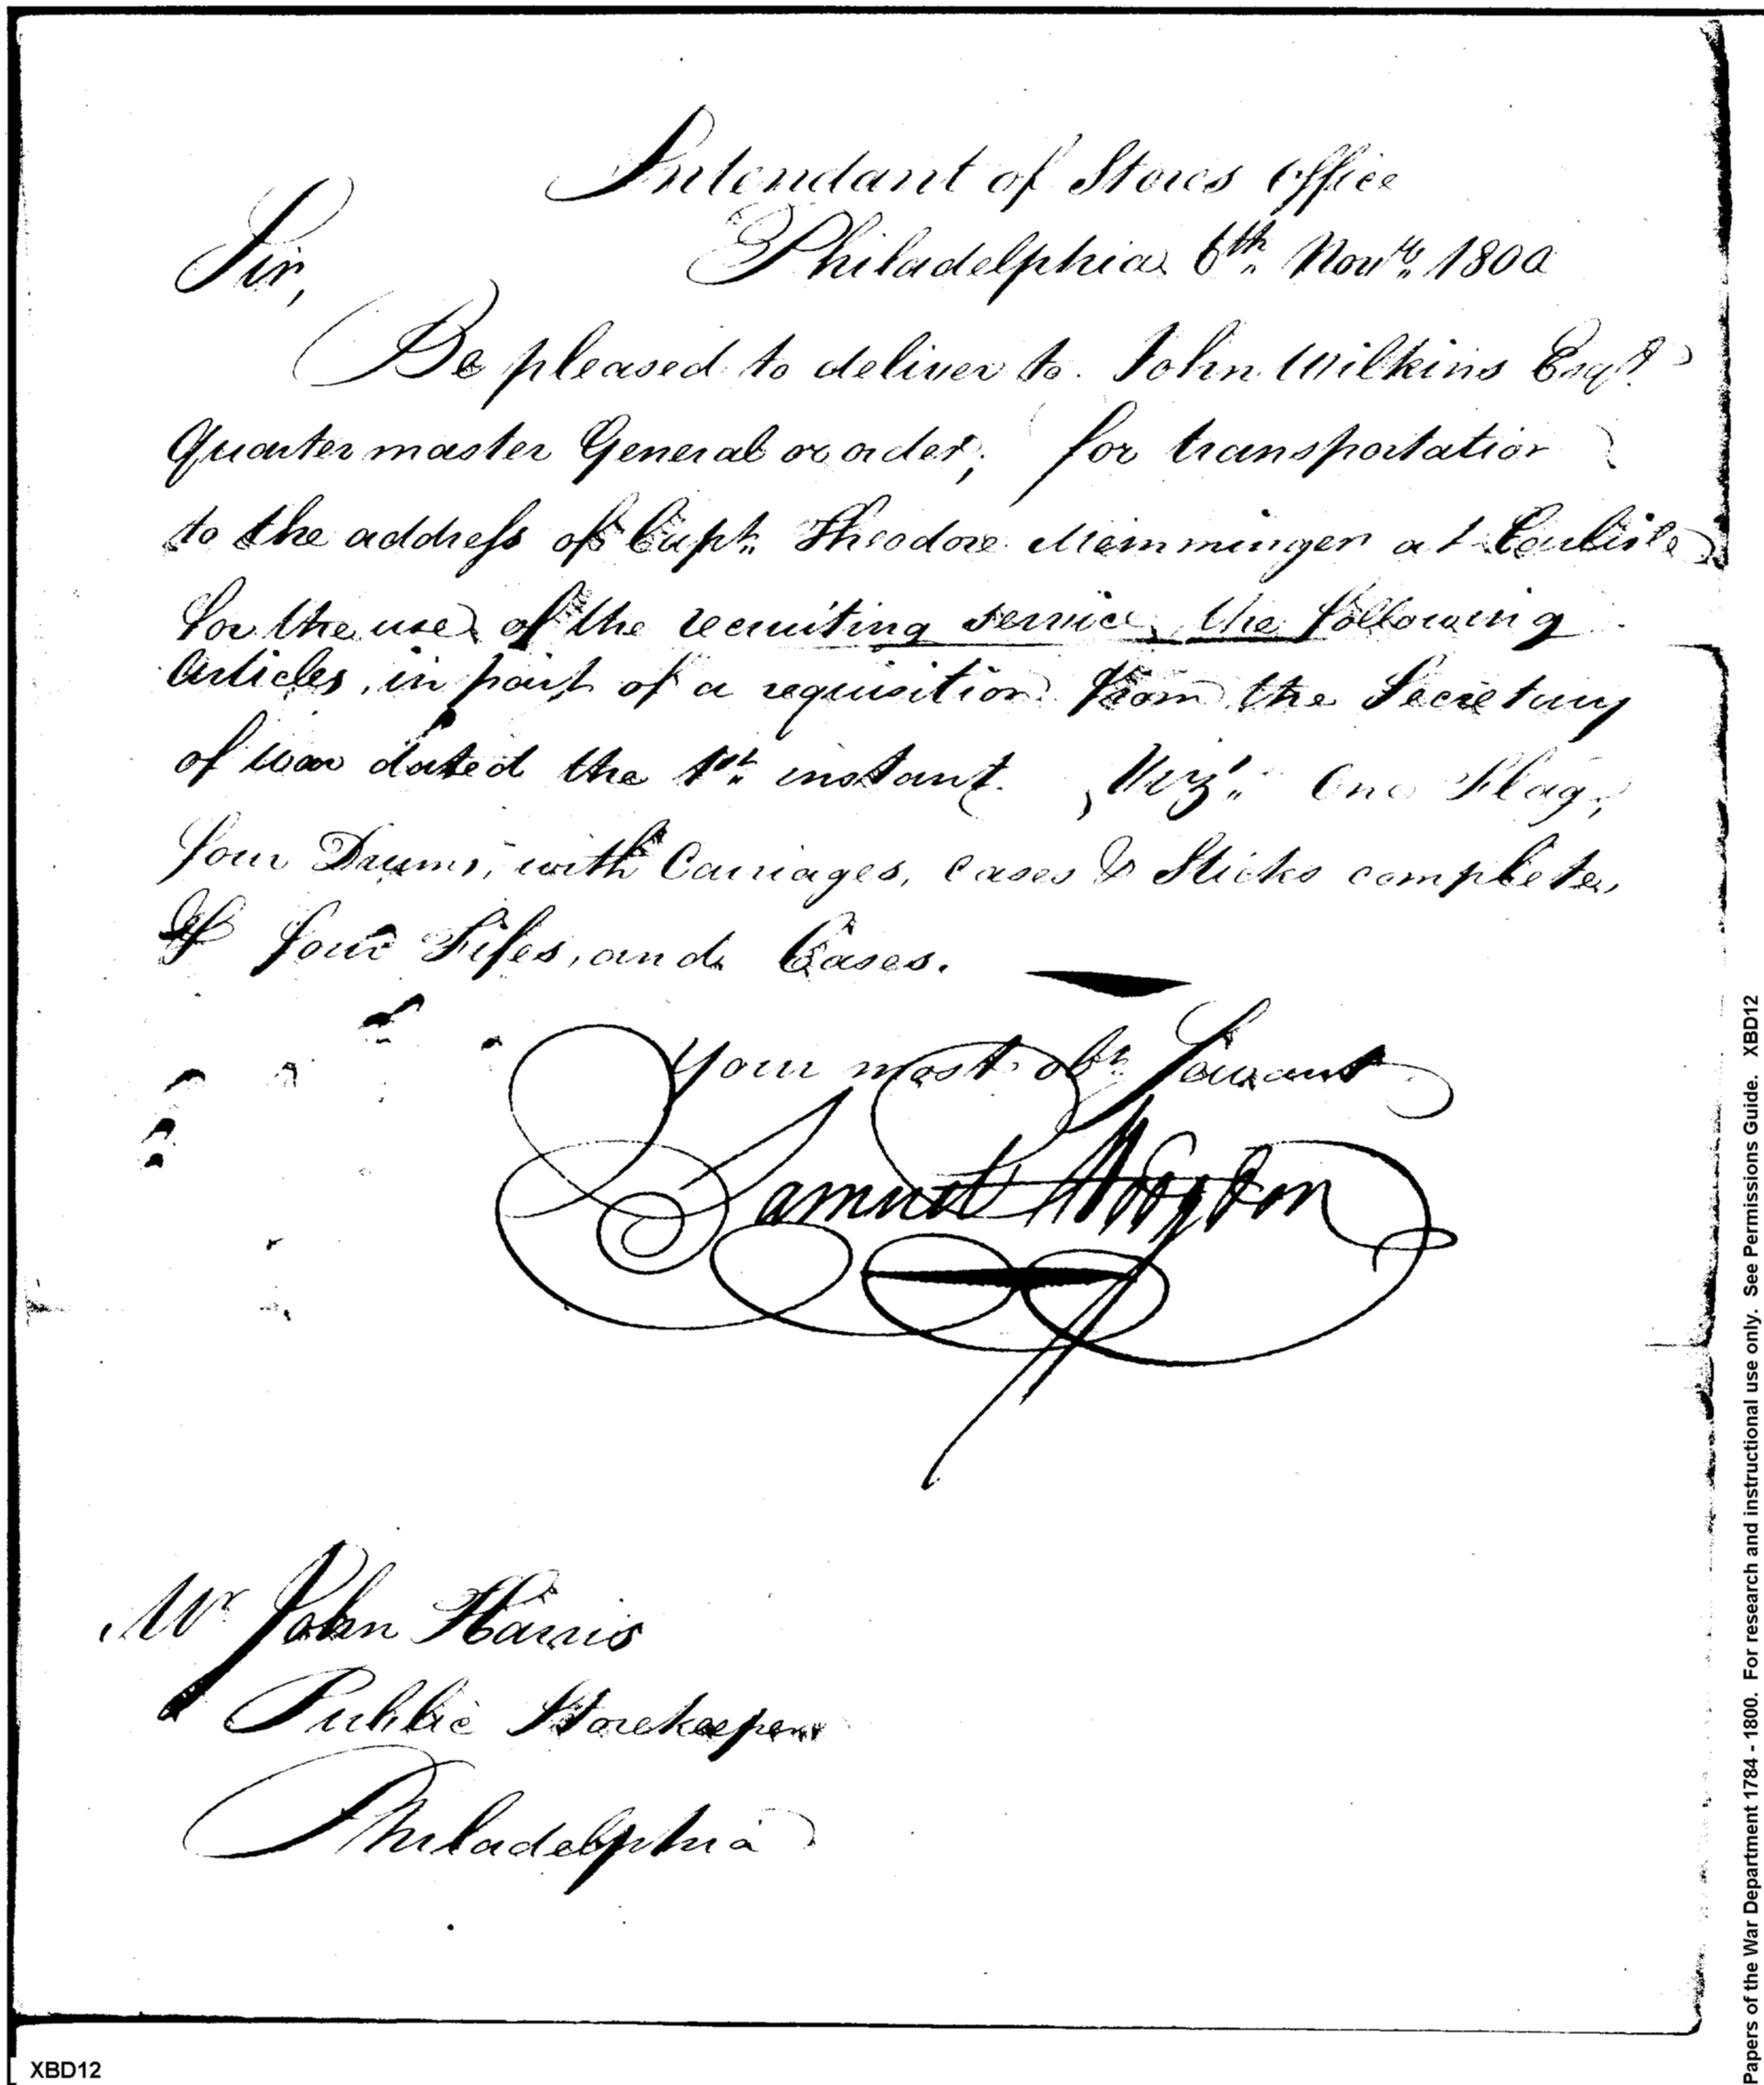 Intendant of Stores Office
Philadelphia 6th Novr. 1800
Sir,
Be pleased to deliver to John Wilkins Esqr.
Quarter master General or order, for transportation
to the address of Capt. Theodore Memminger at Carlisle
for the use of the recruiting service, the following
articles, in part of a requisition from the Secretary
of war dated the 1st. instant, Viz'. One Flag,
four Drums, with Carriages, cases & Sticks complete,
& four Fifes, and Cases.
Your most obt. Servant
Samuel Hodgdon
Mr John Harris
Public Storekeeper
Philadelphia
XBD12
Papers of the War Department 1784 - 1800. For research and instructional use only. See Permissions Guide. XBD12